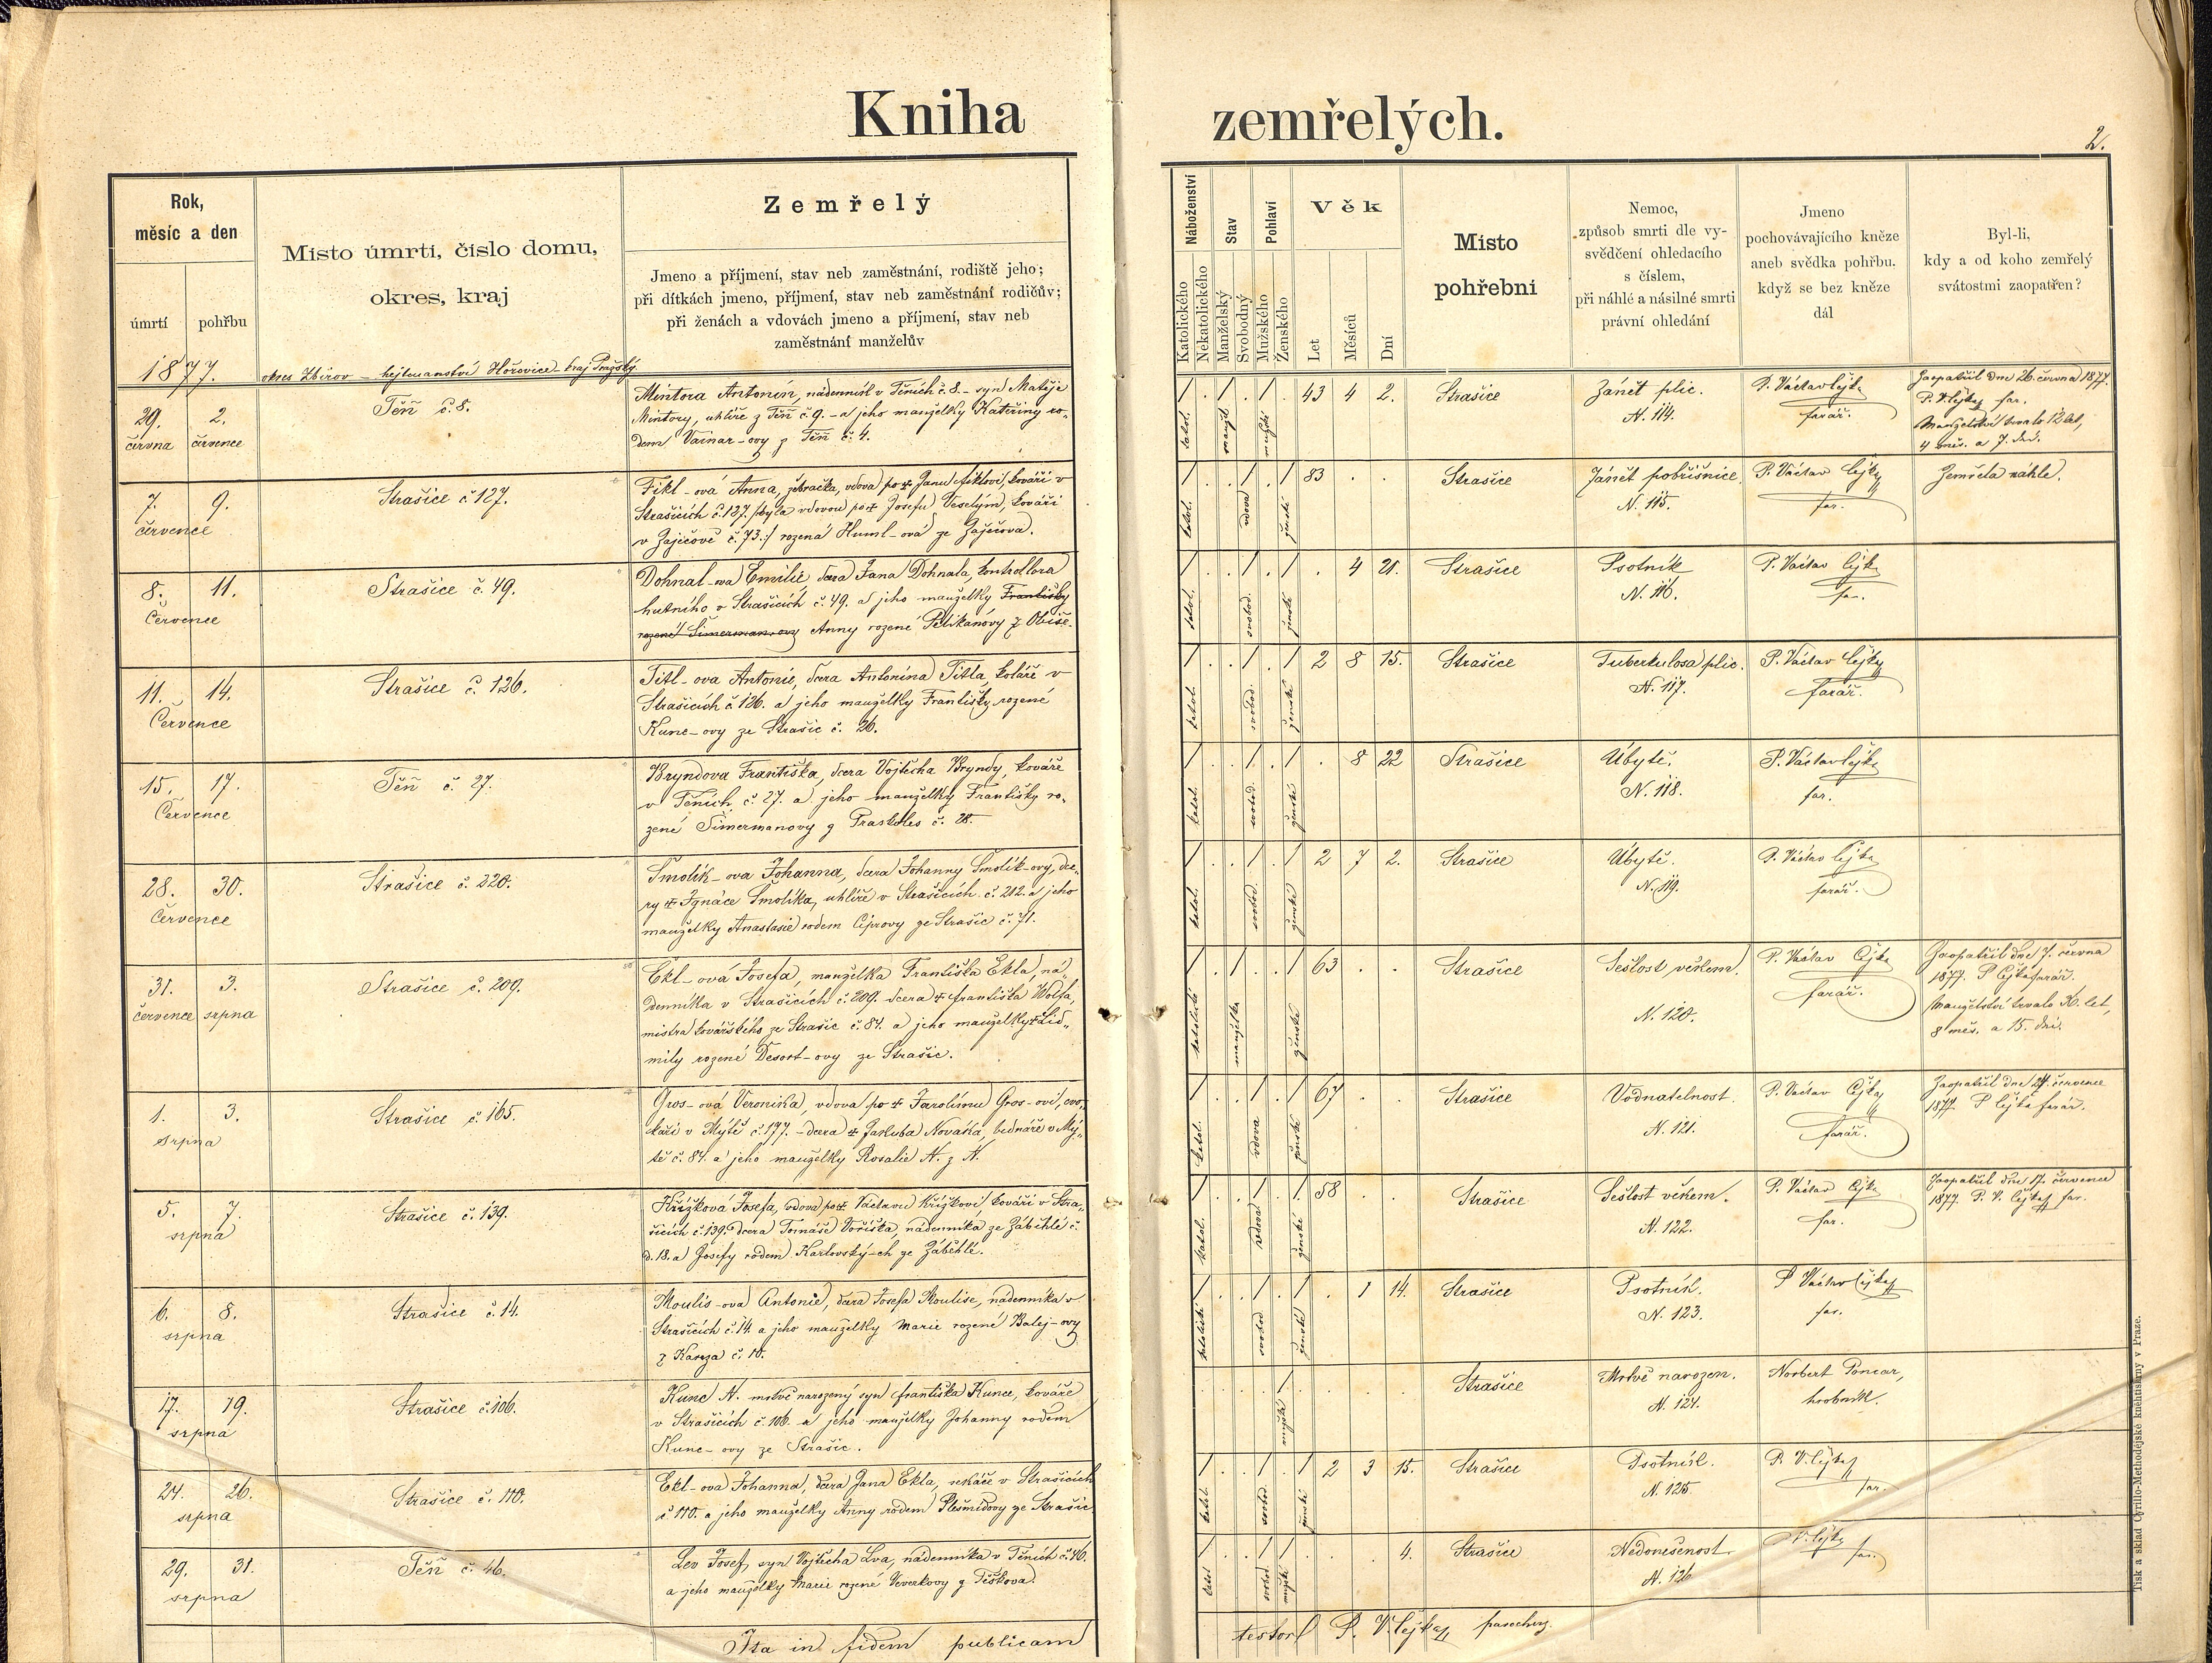 Kniha zemřelých.
2.
Rok,
měsíc a den
úmrtí
pohřbu
Místo úmrtí, číslo domu,
okres, kraj
Zemřelý
Jmeno a příjmení, stav neb zaměstnání, rodiště jeho;
při dítkách jmeno, příjmení, stav neb zaměstnání rodičův;
při ženách a vdovách jmeno a příjmení, stav neb
zaměstnání manželův
Náboženství
Katolického
Nekatolického
Stav
Manželský
Svobodný
Pohlaví
Mužského
Ženského
Věk
Let
Měsíců
Dní
Místo
pohřební
Nemoc,
způsob smrti dle vy-
svědčení ohledacího
s číslem,
při náhlé a násilné smrti
právní ohledání
Jmeno
pochovávajícího kněze
aneb svědka pohřbu.
když se bez kněze
dál
Byl-li,
kdy a od koho zemřelý
svátostmi zaopatřen?
1877.
okres Zbirov – hejtmanství Hořovice – kraj Pražský
29. června
2. července
Těň č. 8.
Mintora Antonín, nádenník v Těních č. 8. – syn Matěje
Mintory, uhlíře z Těň č. 9. – a jeho manželky Kateřiny ro-
dem Vainar-ovy z Těň č. 4.
katol.
manžel
mužské
43 4 2.
Strašice
Zánět plic.
N. 114.
P. Václav Cejka
farář.
Zaopatřil dne 26. června 1877.
P. V. Cejka far.
Manželství trvalo 12 let,
4 měs. a 7. dní.
7. 9.
července
Strašice č. 127.
Fikl-ová Anna, žebračka, vdova po † Janu Fiklovi, kováři v
Strašicích č. 127. /byla vdovou po † Josefu Veselým, kováři
v Zaječově č. 73./ rozená Huml-ová ze Zaječova.
katol.
vdova
ženské
83 . .
Strašice
Zánět pobřišnice.
N. 115.
P. Václav Cejka
far.
Zemřela náhle.
8. 11.
Července
Strašice č. 49.
Dohnal-ova Emilie, dcera Jana Dohnala, kontrollora
hutního v Strašicích č. 49. a jeho manželky Františky
rozené Šimerman-ovy Anny rozené Pelikánovy z Obiše.
katol.
svobod.
ženské
. 4 21.
Strašice
Psotník
N. 116.
P. Václav Cejka
far.
11. 14.
Července
Strašice č. 126.
Titl-ova Antonie, dcera Antonína Titla, koláře v
Strašicích č. 126. a jeho manželky Františky rozené
Kunc-ovy ze Strašic č. 26.
katol.
svobod.
ženské
2 8 15.
Strašice
Tuberkulosa plic.
N. 117.
P. Václav Cejka
farář.
15. 17.
Července
Těň č. 27.
Bryndova Františka, dcera Vojtěcha Bryndy, kováře
v Těních č. 27. a jeho manželky Františky ro-
zené Šimermanovy z Praskoles č. 28.
katol.
svobod.
ženské
. 8 22
Strašice
Úbytě.
N. 118.
P. Václav Cejka
far.
28. 30.
Července
Strašice č. 220.
Smolík-ova Johanna, dcera Johanny Smolík-ovy, dce-
ry † Ignáce Smolíka, uhlíře v Strašicích č. 212. a jeho
manželky Anastasie rodem Ciprovy ze Strašic č. 71.
katol.
svobod.
ženské
2 7 2.
Strašice
Úbytě.
N. 119.
P. Václav Cejka
farář.
31. července
3. srpna
Strašice č. 209.
Ekl-ová Josefa, manželka Františka Ekla, ná-
denníka v Strašicích č. 209. dcera † Františka Wolfa,
mistra kovářského ze Strašic č. 84. a jeho manželky † Lid-
mily rozené Desort-ovy ze Strašic.
katolické
manželka
ženské
63 . .
Strašice
Sešlost věkem.
N. 120.
P. Václav Cejka
farář.
Zaopatřil dne 7. června
1877. P. Cejka farář.
Manželství trvalo let,
8 měs. a 15. dní.
1. 3.
srpna
Strašice č. 165.
Gros-ová Veronika, vdova po † Jarolímu Gros-ovi,
v Mýtě č. 177. – dcera † Jakuba Nováka, bednáře v Mý-
tě č. 84. a jeho manželky Rosalie N. z N.
katol.
vdova
ženské
67 . .
Strašice
Vodnatelnost.
N. 121.
P. Václav Cejka
farář.
Zaopatřil dne 24. července
1877. P. Cejka farář.
5. 7.
srpna
Strašice č. 139.
Křížková Josefa, vdova po † Václavu Křížkovi, kováři v Stra-
šicích č. 139. dcera Tomáše Voříška, nádenníka ze Záběhlé č.
d. 18. a Josefy rodem Karlovský-ch ze Záběhlé.
katol.
vdova
ženské
58 . .
Strašice
Sešlost věkem.
N. 122.
P. Václav Cejka
far.
Zaopatřil dne 17. července
1877. P. V. Cejka far.
6. 8.
srpna
Strašice č. 14.
Moulis-ova Antonie, dcera Josefa Moulise, nádenníka v
Strašicích č. 14. a jeho manželky Marie rozené Balej-ovy
z Kařeza č. 10.
katolické
svobod.
ženské
. 1 14.
Strašice
Psotník.
N. 123.
P. Václav Cejka
far.
17. 19.
srpna
Strašice č. 106.
Kunc N. mrtvě narozený syn Františka Kunce, kováře
v Strašicích č. 106. a jeho manželky Johanny rodem
Kunc-ovy ze Strašic.
mužské
Strašice
Mrtvě narozen.
N. 124.
Norbert Poncar,
hrobník.
24. 26.
srpna
Strašice č. 110.
Ekl-ova Johanna, dcera Jana Ekla, sekáče v Strašicích
č. 110. a jeho manželky Anny rodem Plešmidovy ze Strašic
katol.
svobod.
ženské
2 3 15.
Strašice
Psotník.
N. 125.
P. V. Cejka
far.
29. 31.
srpna
Těň č. 46.
Lev Josef, syn Vojtěcha Lva, nádenníka v Těních č. 46.
a jeho manželky Marie rozené Veverkovy z Těškova.
katol
svobod.
mužské
. . 4.
Strašice
Nedonešenost.
N. 126
V. Cejka
far.
Ita in fidem publicam
testor P. V. Cejka parochus.
Tisk a sklad Cyrillo-Methodějské kněhtiskárny v Praze.